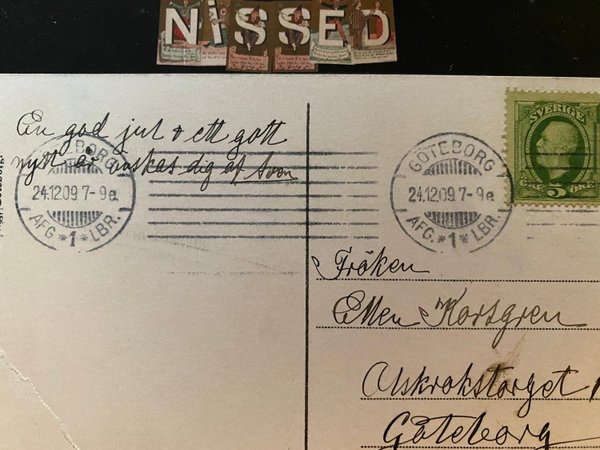 NiSSED
En god jul & ett gott
nytt år önskas dig af Sven
GÖTEBORG
24.12.09.7-9e.
AFG.*1*LBR.
GÖTEBORG
24.12.09.7-9e.
AFG.*1*LBR.
SVERIGE
5
ÖRE
Fröken
Ellen Korsgren
Olskrokstorget 1
Göteborg